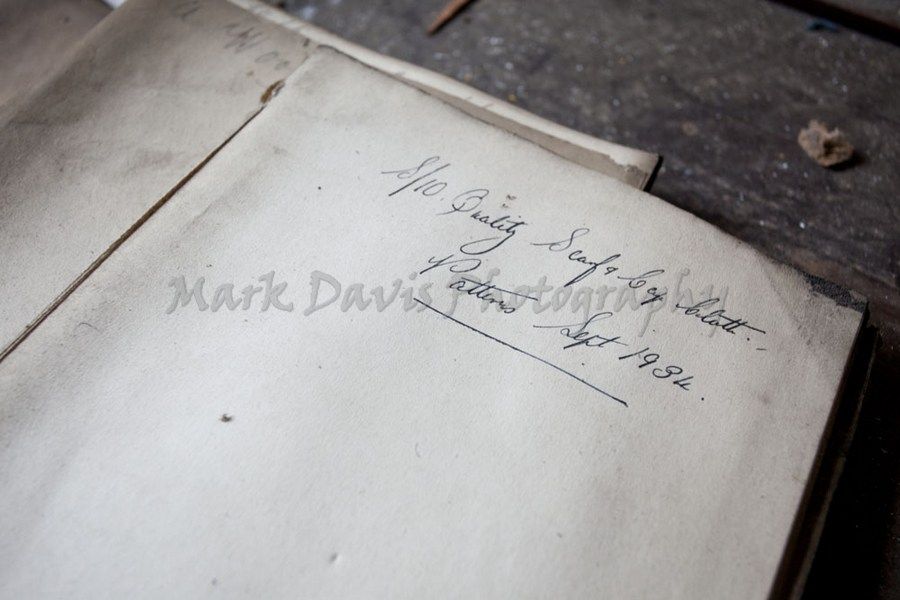 S/10. Quality Scarf & Cloth.
Patterns Sept 1934.
Mark Davis Photography